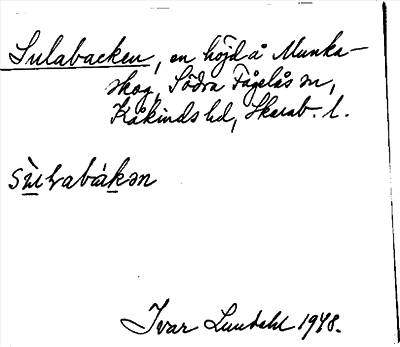 Sulabacken, en höjd å Munka-
skog, Södra Fågelås sn,
Kåkinds hd, Skarab. l.
sùlabákən
Ivar Lundahl 1948.